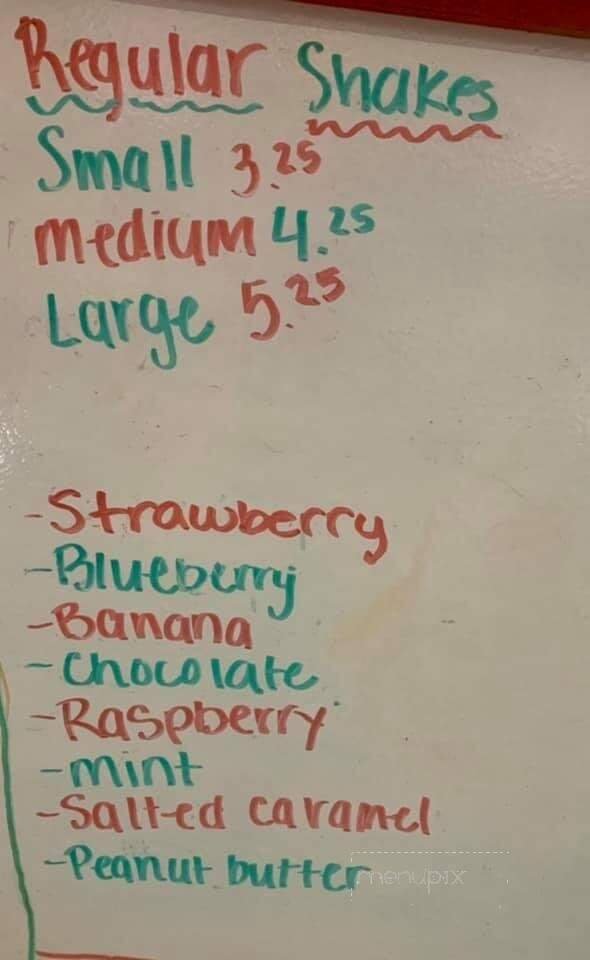 Regular Shakes
Small 3.25
medium 4.25
Large 5.25
-Strawberry
-Blueberry
-Banana
-Chocolate
-Raspberry
-mint
-Salted caramel
-Peanut butter
menupix